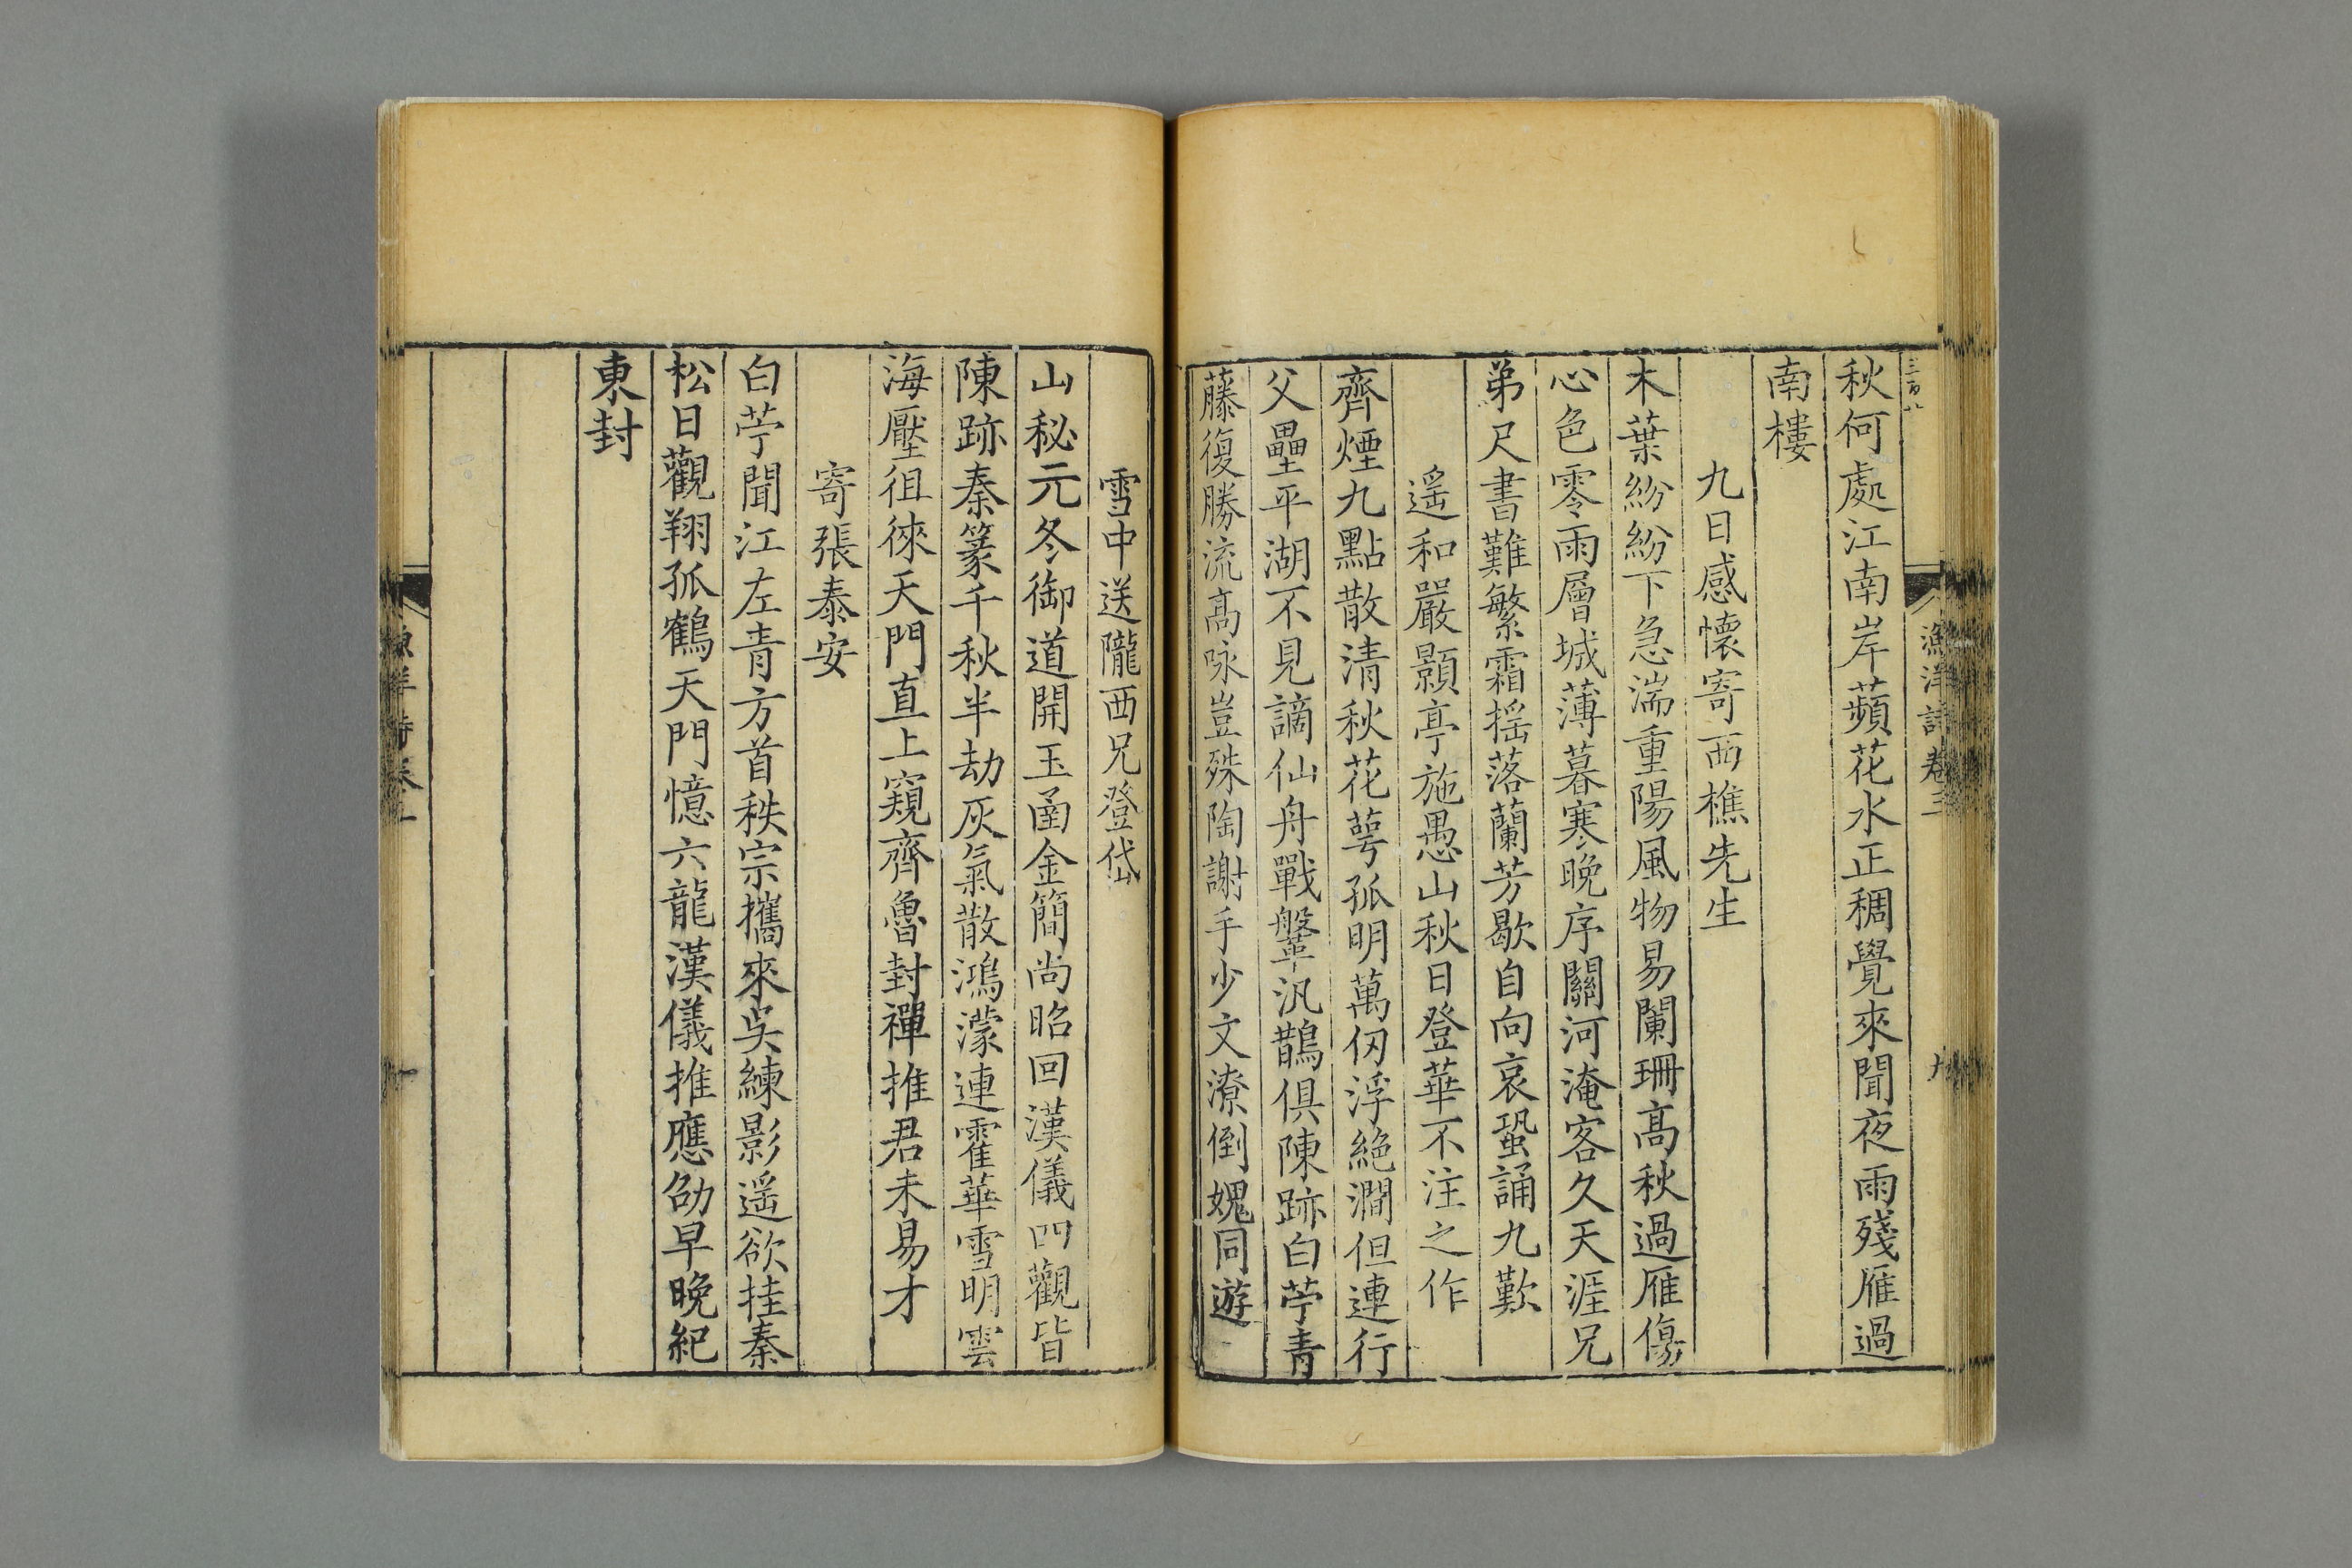 三百八
漁洋詩卷三
秋何處江南岸蘋花水正稠覺來聞夜雨殘雁過
南樓
九日感懷寄西樵先生
木葉紛紛下急湍重陽風物易闌珊高秋過雁傷
心色零雨層城薄暮寒晚序關河淹客久天涯兄
弟尺書難繁霜搖落蘭芳歇自向哀蛩誦九歎
遥和嚴顥亭施愚山秋日登華不注之作
齊煙九點散清秋花萼孤明萬仞浮絶澗但連行
父壘平湖不見謫仙舟戰鞶汎鵲俱陳跡白苧青
藤復勝流高咏豈殊陶謝手少文潦倒媿同遊
雪中送隴西兄登岱
山秘元冬御道開玉函金簡尚昭回漢儀四觀皆
陳跡秦篆千秋半劫灰氣散鴻濛連霍華雪明雲
海壓徂徠天門直上窺齊魯封禪推君未易才
寄張泰安
白苧聞江左青方首秩宗攜來吳練影遥欲挂秦
松日觀翔孤鶴天門憶六龍漢儀推應劭早晚紀
東封
漁洋詩卷三